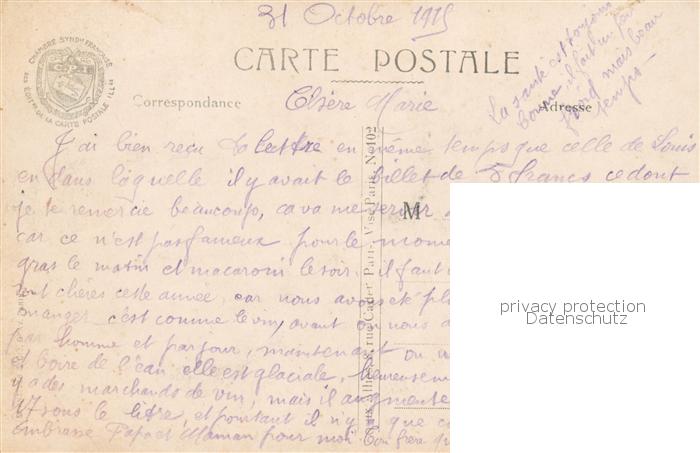 31 Octobre 1915
CHAMBRE SYND^le FRANÇAISE
DES EDIT^rs DE LA CARTE POSTALE ILL^ée
C.P.I
CARTE POSTALE
Correspondance
Adresse
La santé est toujours
bonne, il fait un peu
froid mais beau
temps
Chère Marie
J'ai bien reçu ta lettre en même temps que celle de Louis
en dans laquelle il y avait le billet de 5 francs ce dont
je te remercie beaucoup, ca va me servir
car ce n'est pas fameux pour le mome
gras le matin et macaroni le soir. il faut
sont chères cette année, car nous avons été pl
manger c'est comme le vin, avant on nous d
par homme et par jour, maintenant on
et boire de l'eau elle est glaciale, heureusem
y a des marchands de vin, mais il augmente
17 sous le litre, et pourtant il n'y a que ce
embrasse Papa et Maman pour moi. Ton frère
M
rue Cadet, Paris Visé Paris N° 102
privacy protection
Datenschutz